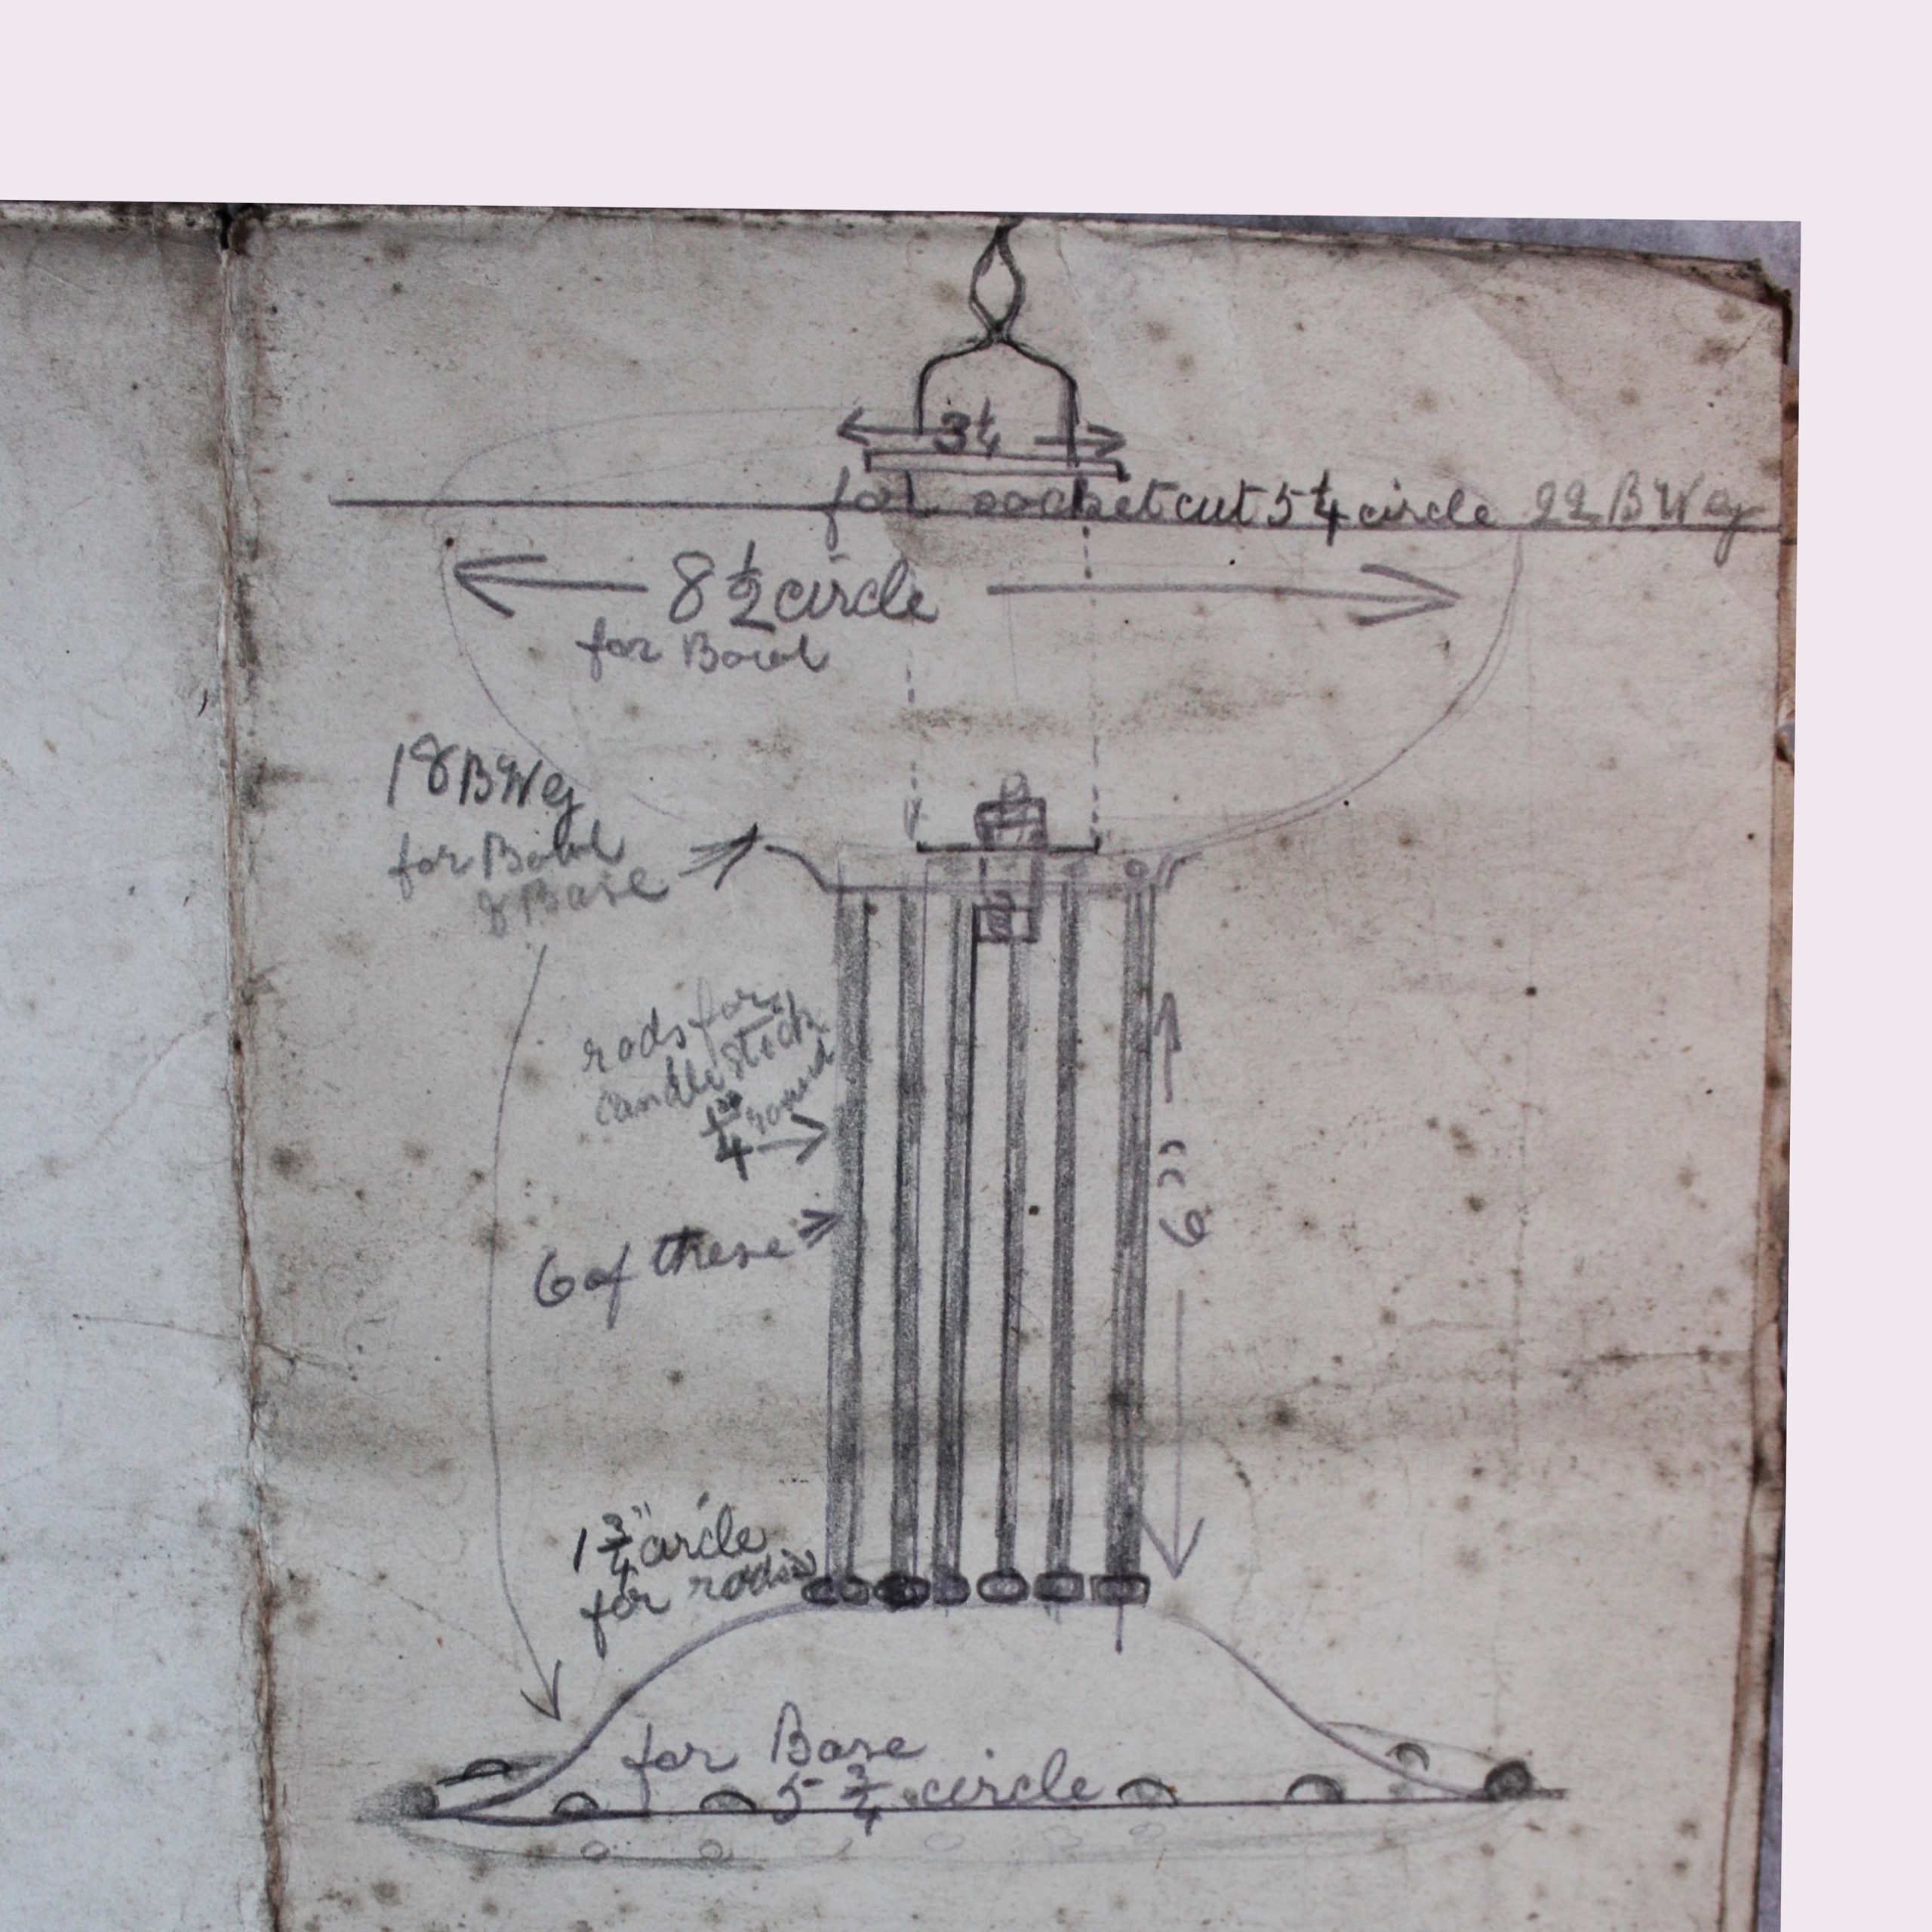 3 1/4
for socket cut 5 1/4 circle 22 BWg
8 1/2 circle
for Bowl
18 BWg
for Bowl
& Base
rods for
candle stick
1/4" round
6 of these
6"
1 3/4" circle
for rods
for Base
5 3/4 circle